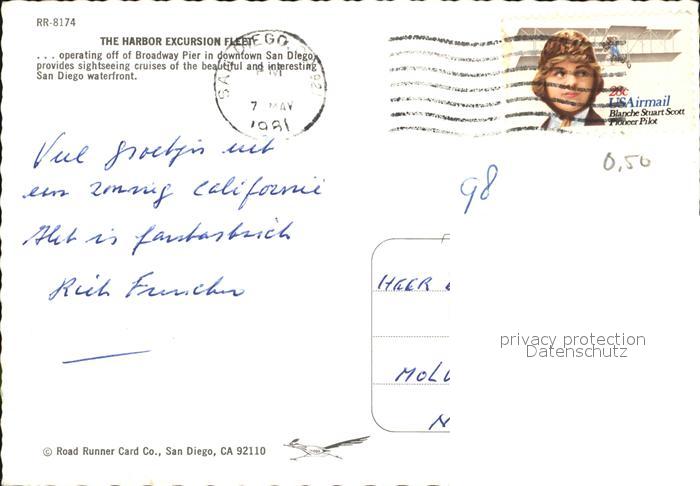 RR-8174
THE HARBOR EXCURSION FLEET
. . . operating off of Broadway Pier in downtown San Diego,
provides sightseeing cruises of the beautiful and interesting
San Diego waterfront.
SAN DIEGO, 
PM
7 MAY
1981
28c
USAirmail
Blanche Stuart Scott
Pioneer Pilot
0,50
98
Veel groetjes uit
een zonnig Californië
Het is fantastisch
HEER
MOL
N
privacy protection
Datenschutz
© Road Runner Card Co., San Diego, CA 92110